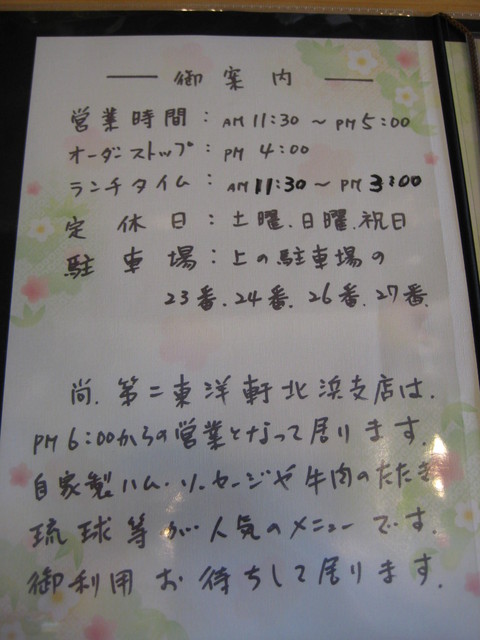 ── 御案内 ──
営業時間：AM 11:30 ～ PM 5:00
オーダーストップ：PM 4:00
ランチタイム：AM 11:30 ～ PM 3:00
定休日：土曜.日曜.祝日
駐車場：上の駐車場の
23番.24番.26番.27番.
尚.第二東洋軒北浜支店は.
PM 6:00からの営業となって居ります.
自家製ハム・ソーセージや牛肉のたたき
琉球等が人気のメニューです.
御利用お待ちして居ります.